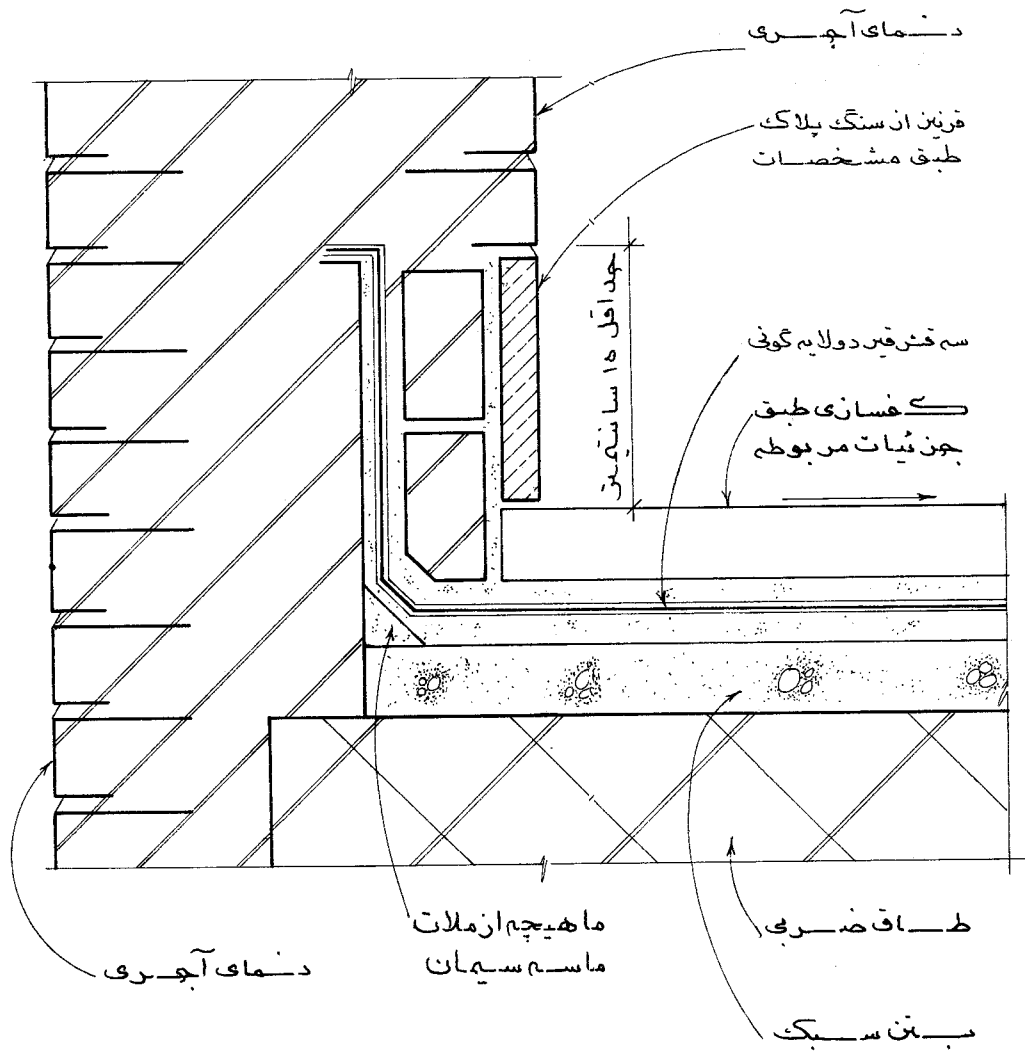 نمای آجری
قرنیز از سنگ پلاک
طبق مشخصات
حداقل ۱۵ سانتیمتر
سه قشر قیر دولایه گونی
کفسازی طبق
جزئیات مربوطه
ماهیچه از ملات
ماسه سیمان
طاق ضربی
نمای آجری
بتن سبک